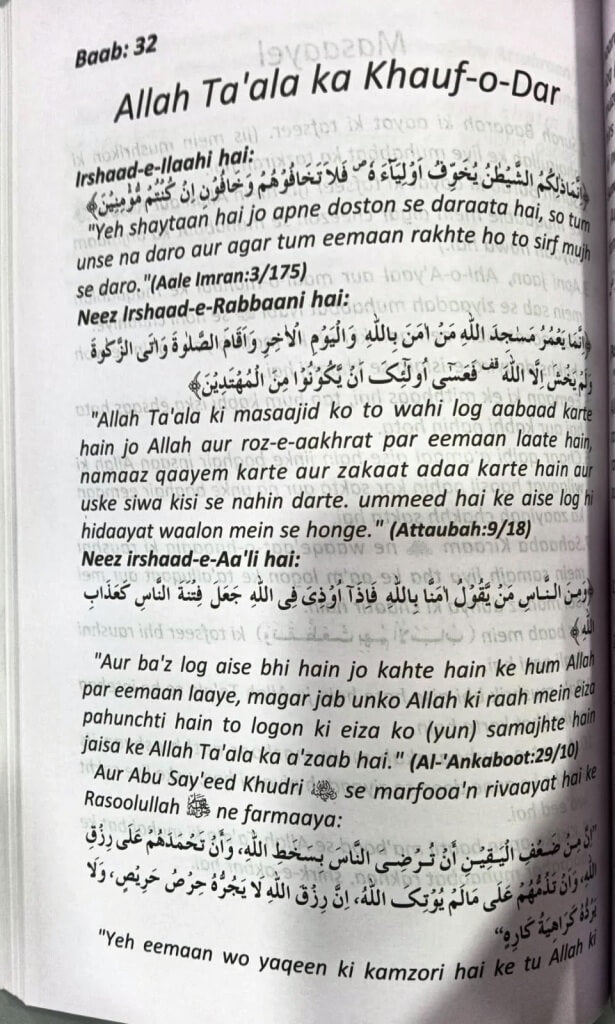 Baab: 32
Allah Ta'ala ka Khauf-o-Dar
Irshaad-e-Ilaahi hai:
﴿اِنَّمَا ذٰلِكُمُ الشَّيْطٰنُ يُخَوِّفُ اَوْلِيَآءَ هٗ ص فَلَا تَخَافُوْهُمْ وَ خَافُوْنِ اِنْ كُنْتُمْ مُّؤْمِنِيْنَ﴾
"Yeh shaytaan hai jo apne doston se daraata hai, so tum
unse na daro aur agar tum eemaan rakhte ho to sirf mujh
se daro."(Aale Imran:3/175)
Neez Irshaad-e-Rabbaani hai:
﴿اِنَّمَا يَعْمُرُ مَسٰجِدَ اللّٰهِ مَنْ اٰمَنَ بِاللّٰهِ وَالْيَوْمِ الْاٰخِرِ وَاَقَامَ الصَّلٰوةَ وَاٰتَى الزَّكٰوةَ
وَلَمْ يَخْشَ اِلَّا اللّٰهَ قف فَعَسٰٓى اُولٰٓئِكَ اَنْ يَّكُوْنُوْا مِنَ الْمُهْتَدِيْنَ﴾
"Allah Ta'ala ki masaajid ko to wahi log aabaad karte
hain jo Allah aur roz-e-aakhrat par eemaan laate hain,
namaaz qaayem karte aur zakaat adaa karte hain aur
uske siwa kisi se nahin darte. ummeed hai ke aise log hi
hidaayat waalon mein se honge." (Attaubah:9/18)
Neez irshaad-e-Aa'li hai:
﴿وَمِنَ النَّاسِ مَنْ يَّقُوْلُ اٰمَنَّا بِاللّٰهِ فَاِذَآ اُوْذِىَ فِى اللّٰهِ جَعَلَ فِتْنَةَ النَّاسِ كَعَذَابِ
اللّٰهِ﴾
"Aur ba'z log aise bhi hain jo kahte hain ke hum Allah
par eemaan laaye, magar jab unko Allah ki raah mein eiza
pahunchti hain to logon ki eiza ko (yun) samajhte hain
jaisa ke Allah Ta'ala ka a'zaab hai." (Al-'Ankaboot:29/10)
Aur Abu Say'eed Khudri se marfooa'n rivaayat hai ke
Rasoolullah ﷺ ne farmaaya:
"اِنَّ مِنْ ضَعْفِ الْيَقِيْنِ اَنْ تُرْضِىَ النَّاسَ بِسَخَطِ اللّٰهِ، وَاَنْ تَحْمَدَهُمْ عَلٰى رِزْقِ
اللّٰهِ، وَاَنْ تَذُمَّهُمْ عَلٰى مَالَمْ يُؤْتِكَ اللّٰهُ، اِنَّ رِزْقَ اللّٰهِ لَا يَجُرُّهُ حِرْصُ حَرِيْصٍ، وَلَا
يَرُدُّهُ كَرَاهِيَةُ كَارِهٍ"
"Yeh eemaan wo yaqeen ki kamzori hai ke tu Allah ki